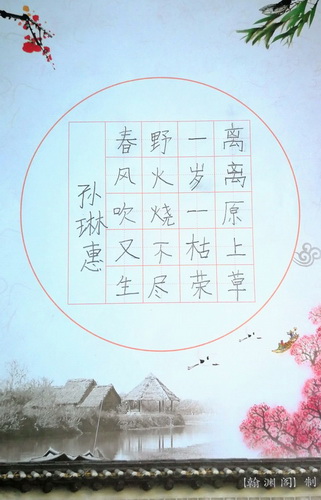 离离原上草
一岁一枯荣
野火烧不尽
春风吹又生
孙琳惠
【翰渊阁】制